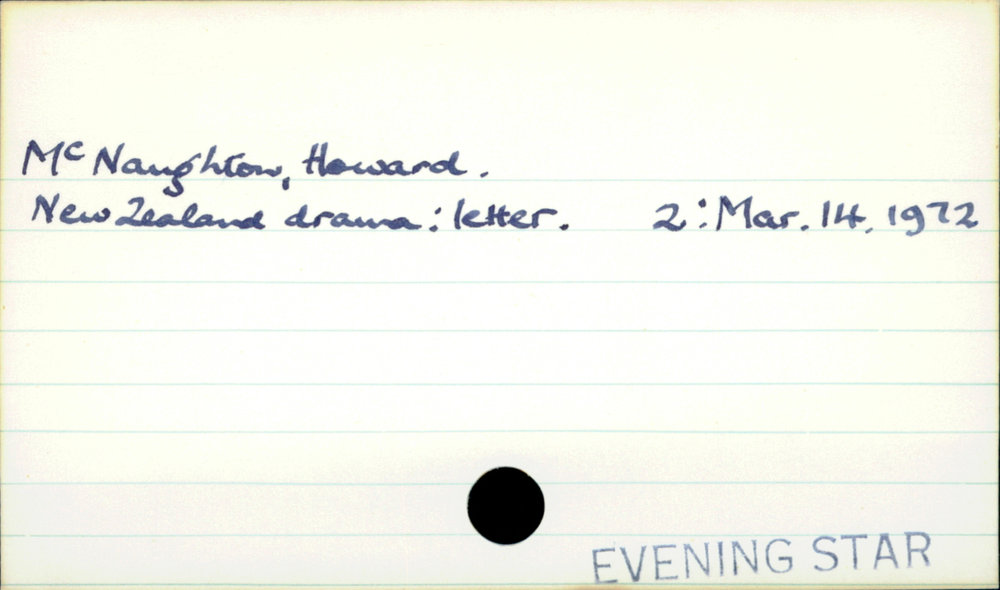 Mc Naughton, Howard.
New Zealand drama: letter. 2: Mar. 14, 1972
EVENING STAR